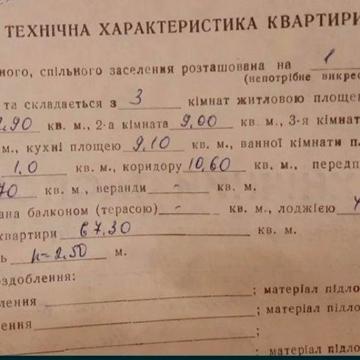 ТЕХНІЧНА ХАРАКТЕРИСТИКА КВАРТИРИ
ного, спільного заселення розташована на 1
(непотрібне викрес
та складається з 3 кімнат житловою площею
,90 кв. м., 2-а кімната 9,00 кв. м., 3-я кімнат
м., кухні площею 9,10 кв. м., ванної кімнати пл
1,0 кв. м., коридору 10,60 кв. м., передп
70 кв. м., веранди - кв. м.
ана балконом (терасою) - кв. м., лоджією
квартири 67,30 кв. м.
ь h=2.50 м.
оздоблення:
; матеріал підло
лення ; матеріал підло
ення ; матеріал підло
; матеріал підло